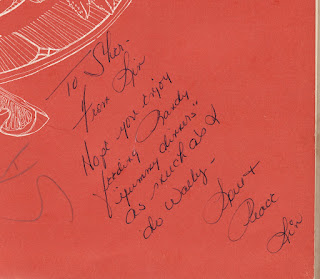 To Sher-
From Lin
Hope you enjoy
feeding Randy
"yummy dinners"
as much as I
do Wally-
Love +
Peace
Lin